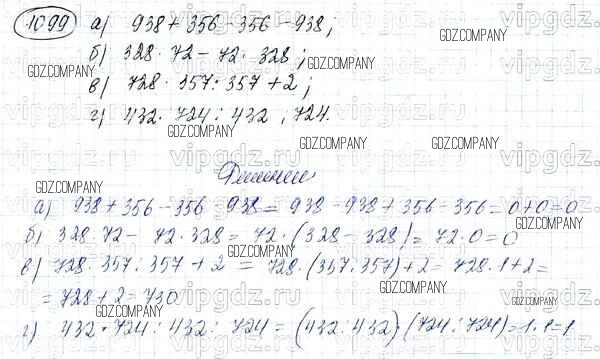 1099 а) 938 + 356 - 356 - 938;
б) 328 · 72 - 72 · 328;
в) 728 · 357 : 357 + 2;
г) 432 · 724 : 432 : 724.
Решение
а) 938 + 356 - 356 - 938 = 938 - 938 + 356 - 356 = 0 + 0 = 0
б) 328 · 72 - 72 · 328 = 72 · (328 - 328) = 72 · 0 = 0
в) 728 · 357 : 357 + 2 = 728 · (357 : 357) + 2 = 728 · 1 + 2 =
= 728 + 2 = 730
г) 432 · 724 : 432 : 724 = (432 : 432) · (724 : 724) = 1 · 1 = 1